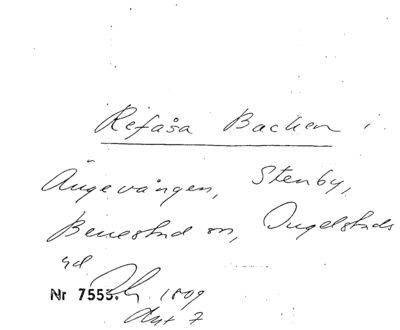 Refåsa Backen i
Ängevången, Stenby,
Benestad sn, Ingelstads
hd
Nr 7555. 1809
Akt 7